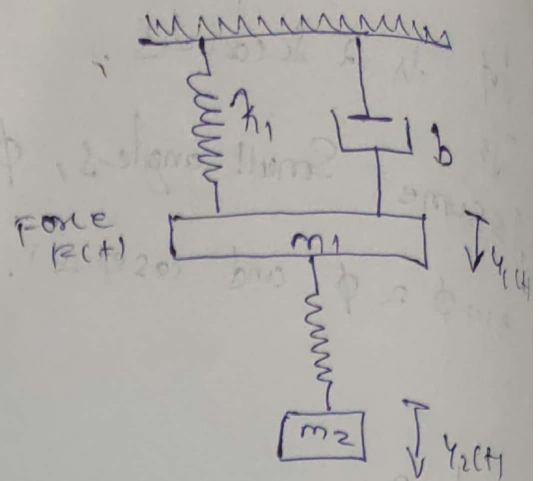 k1
b
Force
F(t)
m1
y1(t)
m2
y2(t)